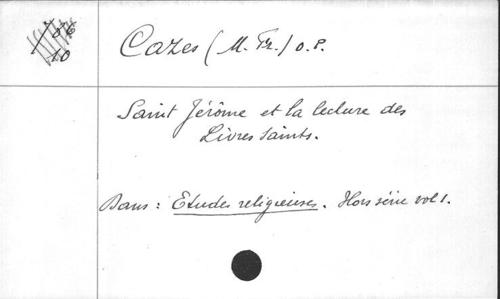 10
Cazes (M. Fr.) O.P.
Saint Jérôme et la lecture des
Livres Saints.
Dans : Etudes religieuses. Hors série vol 1.